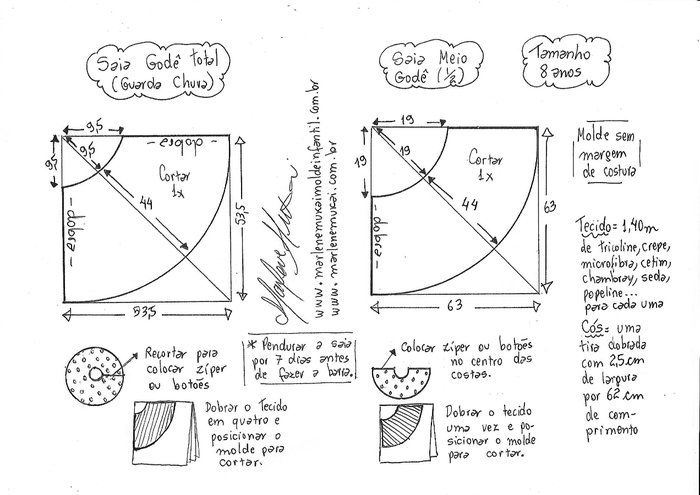 Saia Godê total
(Guarda Chuva)
Saia Meio
Godê (1/2)
Tamanho
8 anos
9,5
9,5
9,5
- dobra -
- dobra -
Cortar
1x
44
53,5
53,5
Marlene Mukai
www.marlenemukaimoldeinfantil.com.br
www.marlenemukai.com.br
19
19
19
- dobra -
Cortar
1x
44
63
63
Molde sem
margem
de costura
Tecido = 1,40m
de tricoline, crepe,
microfibra, cetim,
chambray, seda,
popeline...
para cada uma
Cós = uma
tira dobrada
com 2,5cm
de largura
por 62cm
de com-
primento
Recortar para
colocar zíper
ou botões
* Pendurar a saia
por 7 dias antes
de fazer a barra.
Colocar zíper ou botões
no centro das
costas.
Dobrar o Tecido
em quatro e
posicionar o
molde para
cortar.
Dobrar o tecido
uma vez e po-
sicionar o molde
para cortar.